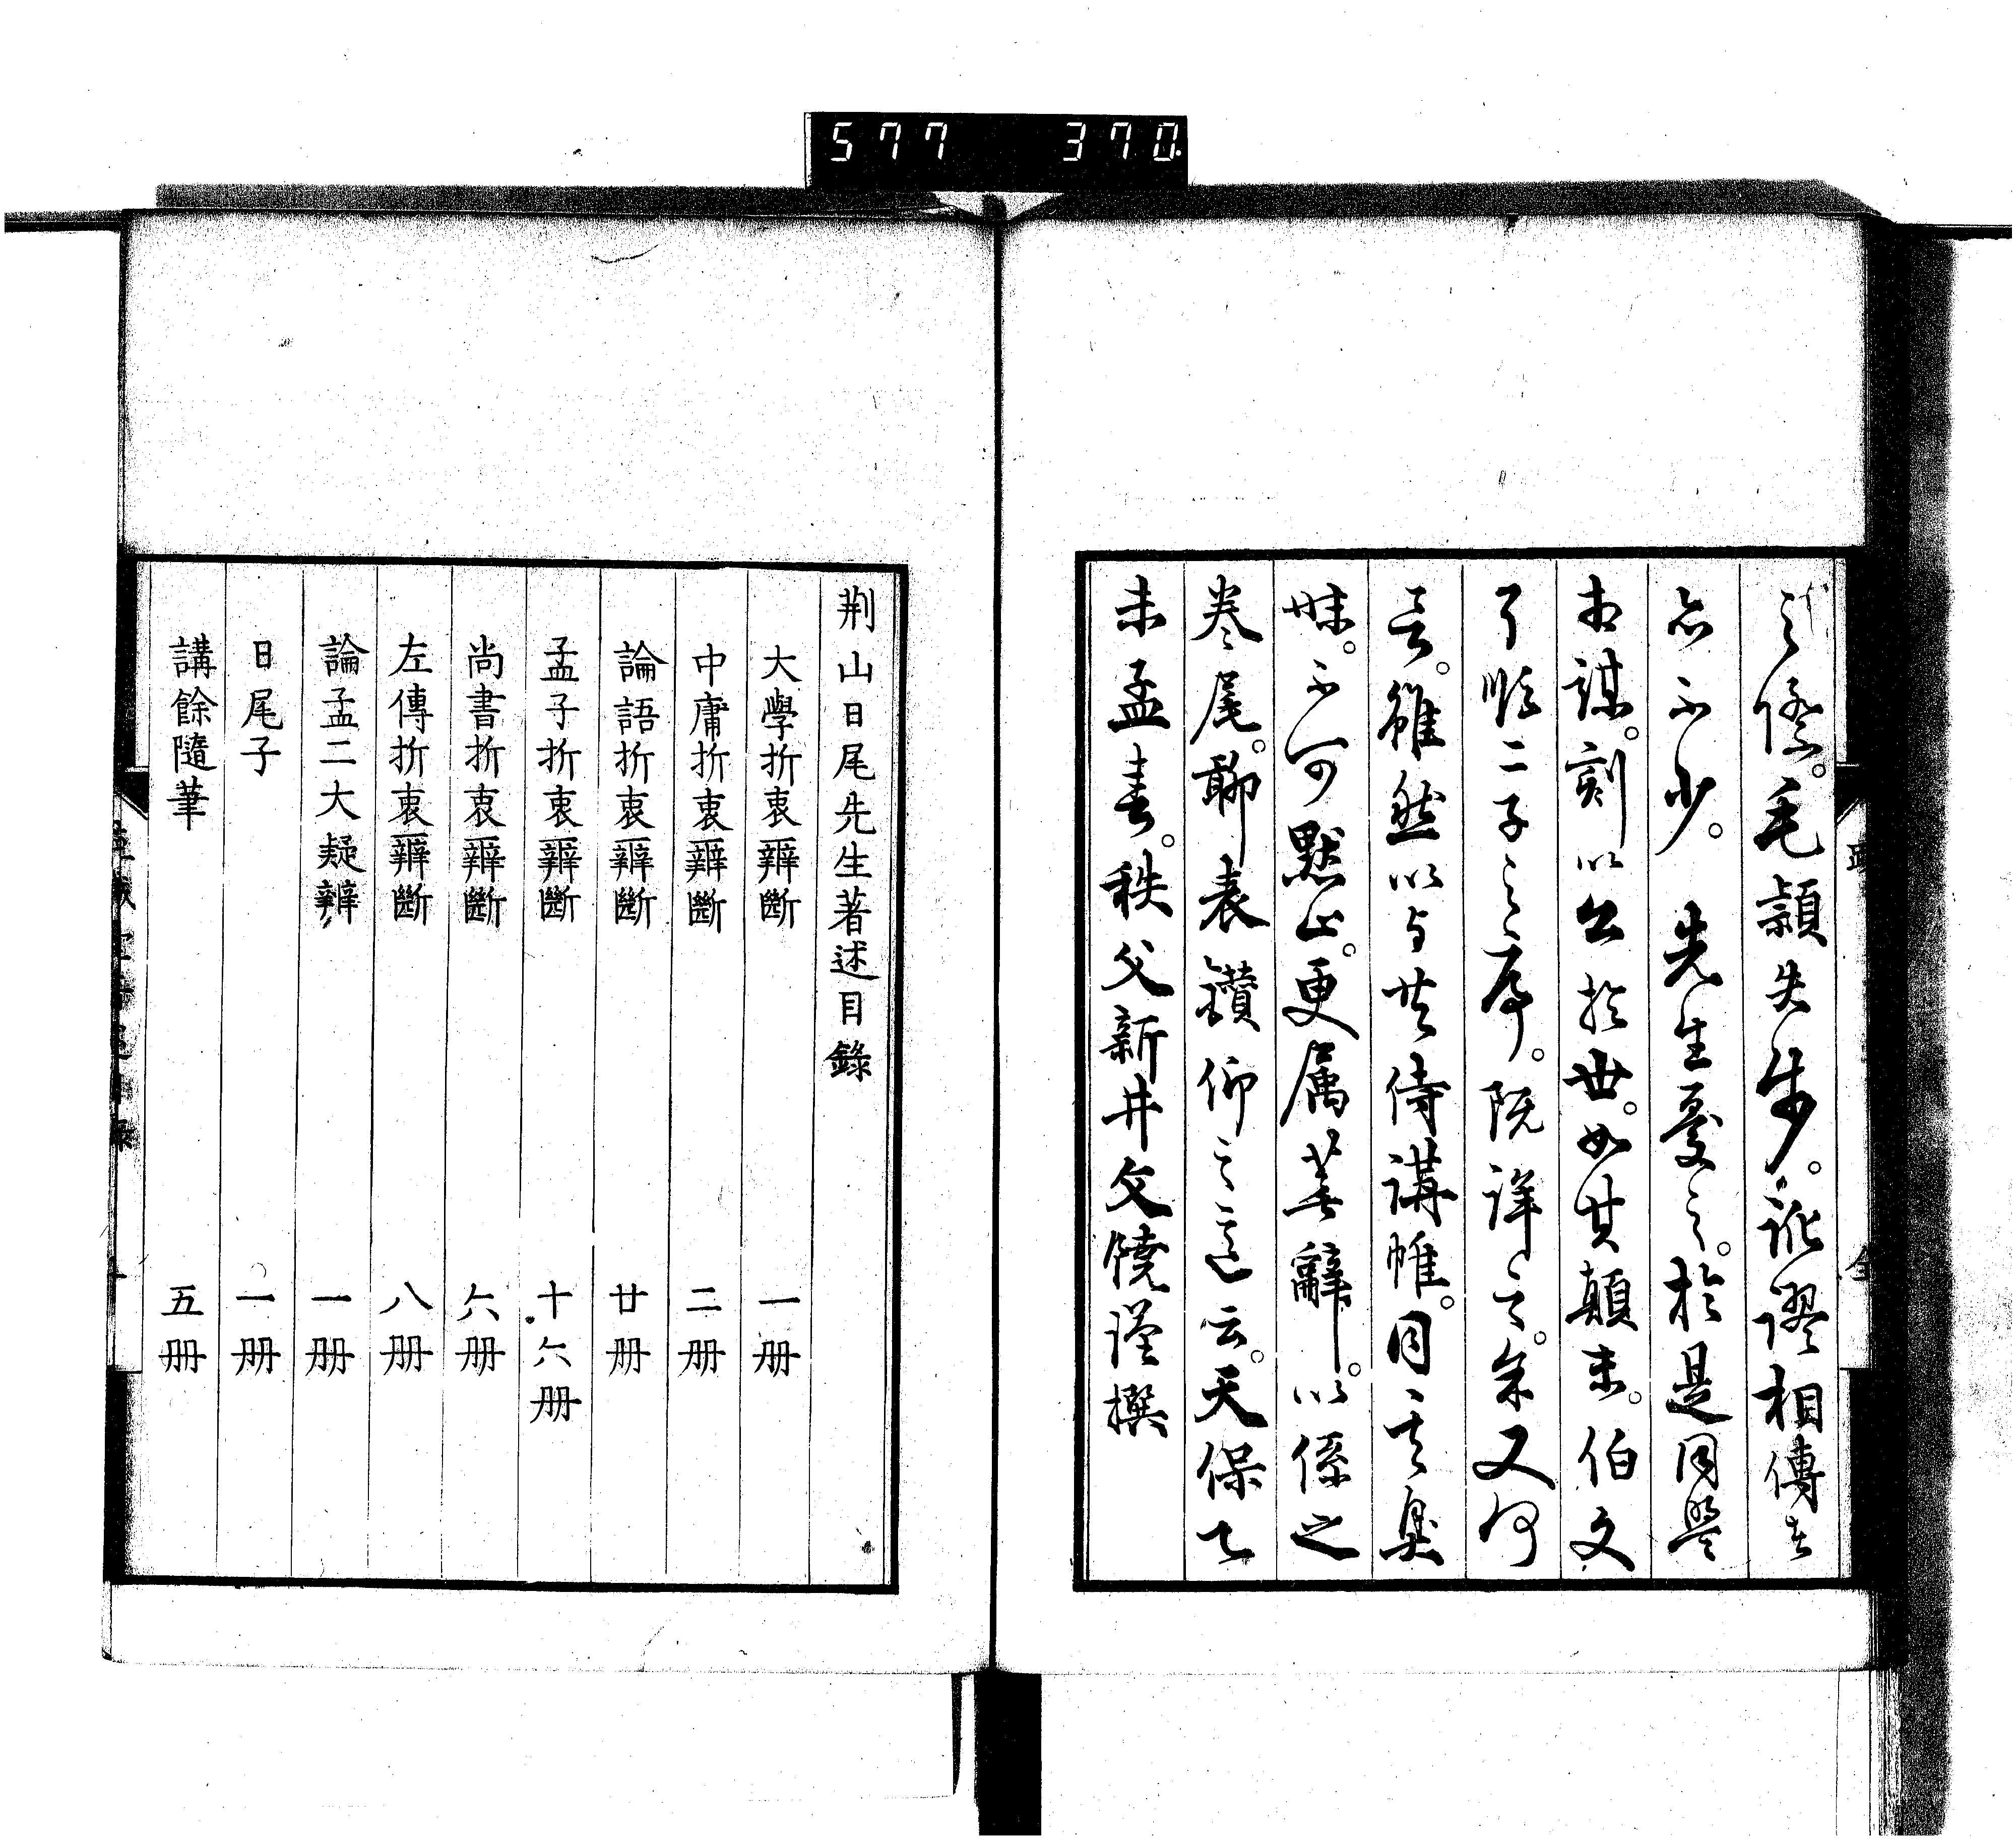 577 370
之際。毛穎失步。訛謬相傳者
亦不少。先生憂之。於是同學
相謀。刻以公於世。如其顛末。伯文
子順二子之序。既詳之。余又何
言。雖然以与共侍講帷。同其奧
昧。不可默止。更属蕪辭。以係之
卷尾。聊表鑽仰之意云。天保乙
未孟春。秩父新井文饒謹撰
跋 全
荆山日尾先生著述目錄
大學折衷辨斷 一册
中庸折衷辨斷 二册
論語折衷辨斷 廿册
孟子折衷辨斷 十六册
尚書折衷辨斷 六册
左傳折衷辨斷 八册
論孟二大疑辨 一册
日尾子 一册
講餘隨筆 五册